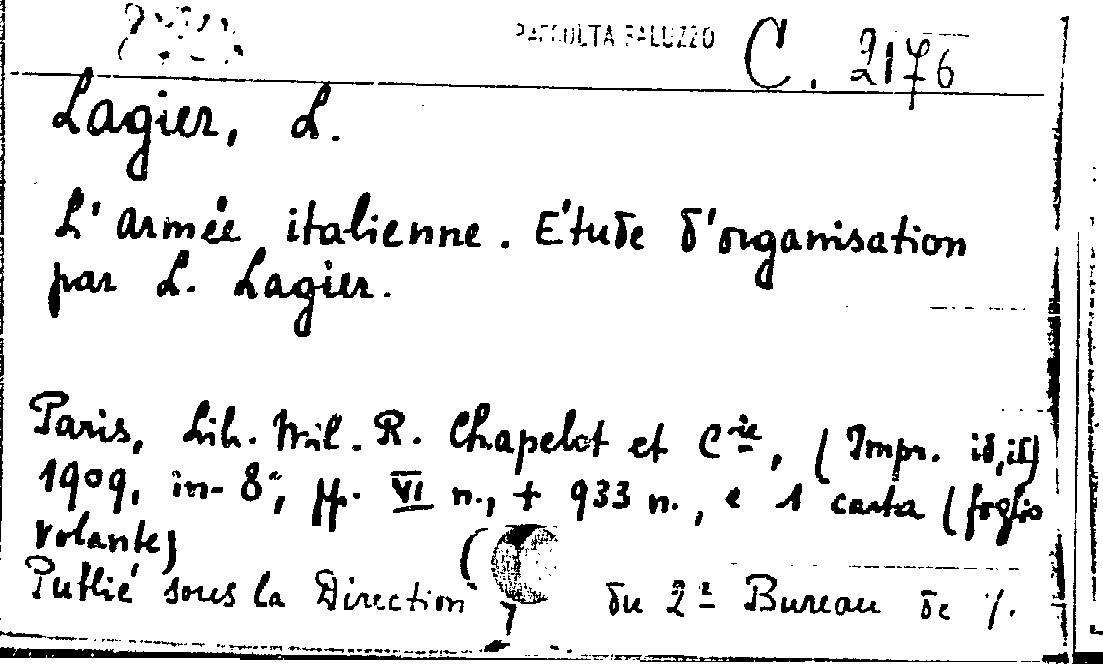 RACCOLTA SALUZZO C. 2176
Lagier, L.
L'armée italienne. Etude d'organisation
par L. Lagier.
Paris, Lib. Mil. R. Chapelot et Cie, (Impr. id, id)
1909, in-8°, pp. VI n., + 933 n., e 1 carta (foglio
volante)
Publié sous la Direction du 2e Bureau de